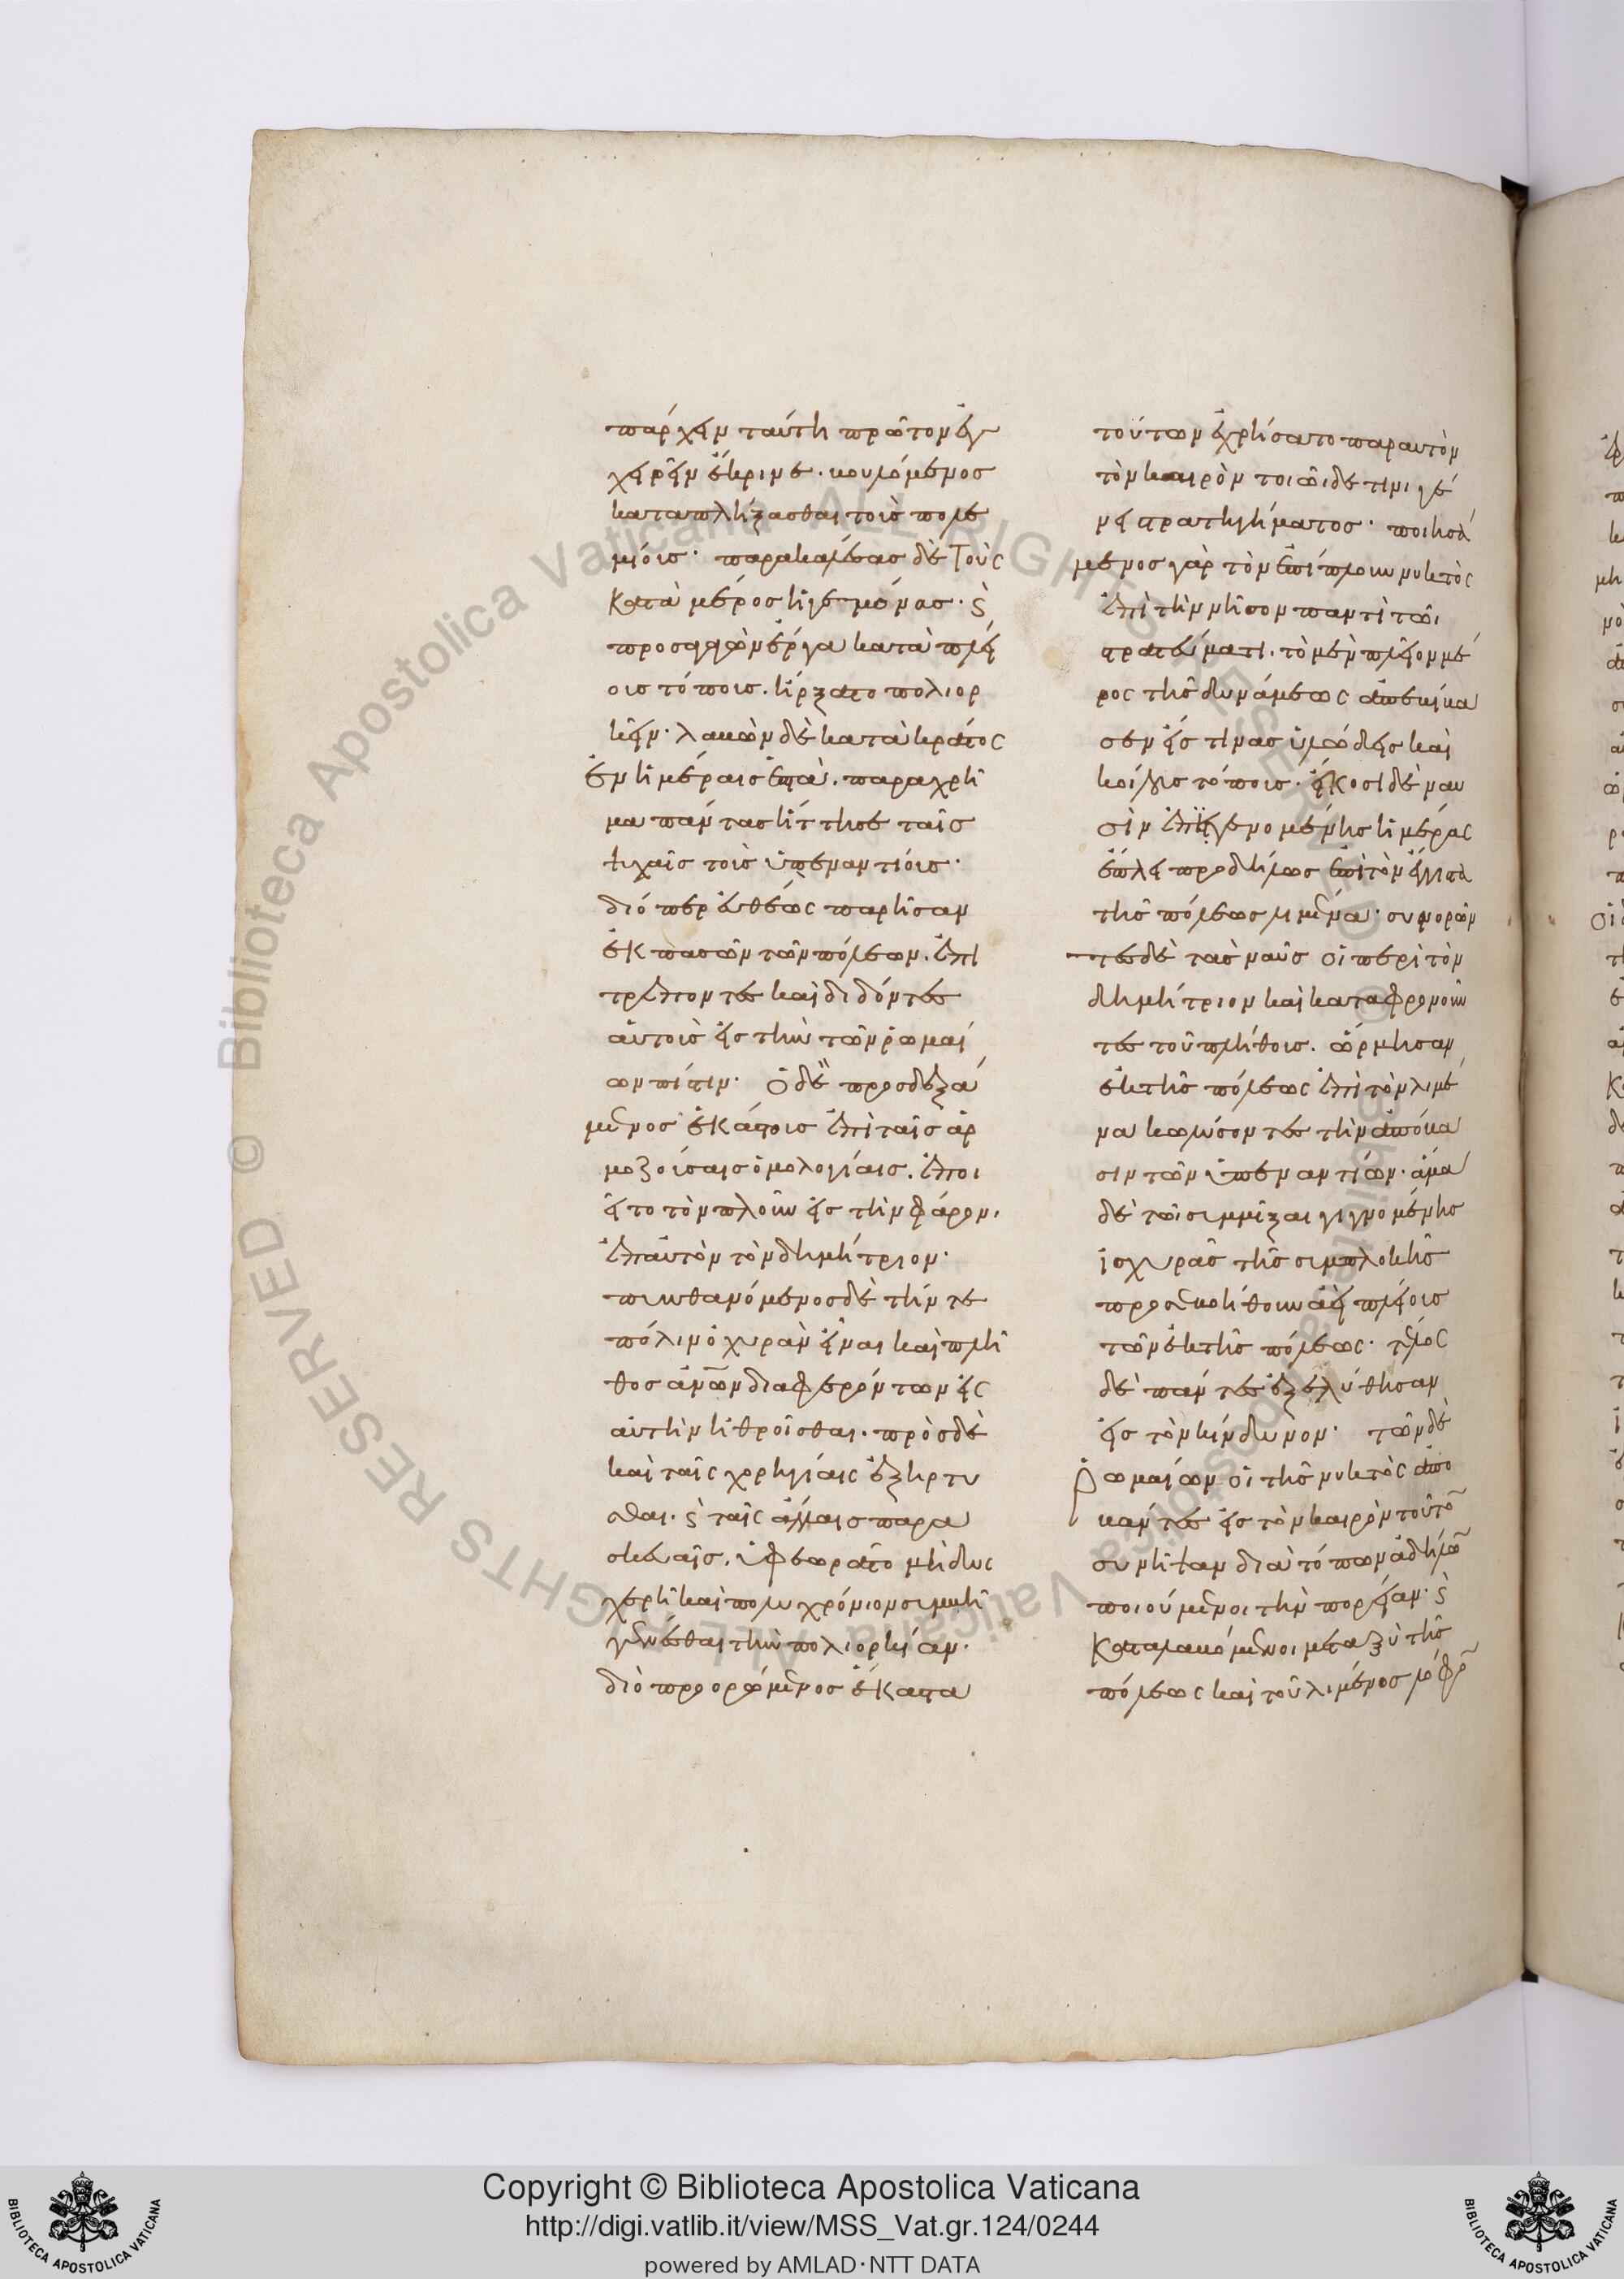 πάρχειν ταύτηι πρῶτον ἐγ
χειρεῖν ἔκρινε· βουλόμενος
καταπλήξασθαι τοὺς πολε
μίους· παρακαλέσας δὲ τοὺς
κατὰ μέρος ἡγεμόνας· ϗ
προσαγαγὼν ἔργα κατὰ πλεί
ους τόπους· ἤρξατο πολιορ
κεῖν· λαβὼν δὲ κατὰ κράτος
ἐν ἡμέραις ἑπτὰ· παραχρῆ
μα πάντας ἥττησε ταῖς
ψυχαῖς τοὺς ὑπεναντίους·
διόπερ εὐθέως παρῆσαν
ἐκ πασῶν τῶν πόλεων· ἐπι
τρέποντες καὶ διδόντες
αὑτοὺς εἰς τὴν τῶν ῥωμαί
ων πίστιν· ὁ δὲ προσδεξά
μενος ἑκάστους ἐπὶ ταῖς ἁρ
μοζούσαις ὁμολογίαις· ἐποι
εῖτο τὸν πλοῦν εἰς τὴν φάρον·
ἐπ' αὐτὸν τὸν δημήτριον·
πυνθανόμενος δὲ τήν τε
πόλιν ὀχυρὰν εἶναι καὶ πλῆ
θος ἀνῶν διαφερόντων εἰς
αὐτὴν ἠθροῖσθαι· πρὸς δὲ
καὶ ταῖς χορηγίαις ἐξηρτύ
σθαι· ϗ ταῖς ἄλλαις παρα
σκευαῖς· ὑφεωρᾶτο μὴ δυς
χερῆ καὶ πολυχρόνιον συμβῆ
γενέσθαι τὴν πολιορκίαν·
διὸ προορώμενος ἕκαστα
τούτων ἐχρήσατο παρ' αὐτὸν
τὸν καιρὸν τοιῶιδέ τινι γέ
νει στρατηγήματος· ποιησά
μενος γὰρ τὸν ἐπίπλουν νυκτὸς
ἐπὶ τὴν νῆσον παντὶ τῶι
στρατεύματι· τὸ μὲν πλεῖον μέ
ρος τῆς δυνάμεως ἀπεβίβα
σεν εἴς τινας ὑλώδεις καὶ
κοίλους τόπους· εἴκοσι δὲ ναυ
σὶν ἐπιγενομένης ἡμέρας
ἔπλει προδήλως ἐπὶ τὸν ἔγγιστα
τῆς πόλεως λιμένα· συνορῶν
τες δὲ τὰς ναῦς οἱ περὶ τὸν
δημήτριον καὶ καταφρονοῦν
τες τοῦ πλήθους· ὥρμησαν
ἐκ τῆς πόλεως ἐπὶ τὸν λιμέ
να κωλύσοντες τὴν ἀπόβα
σιν τῶν ὑπεναντίων· ἅμα
δὲ τῶι συμμῖξαι γιγνομένης
ἰσχυρᾶς τῆς συμπλοκῆς
προσεβοήθουν ἀεὶ πλείους
τῶν ἐκ τῆς πόλεως· τέλος
δὲ πάντες ἐξελύθησαν
εἰς τὸν κίνδυνον· τῶν δὲ
ῥωμαίων οἱ τῆς νυκτὸς ἀπο
βάντες εἰς τὸν καιρὸν τοῦτο
συνῆψαν διὰ τόπων ἀδήλων
ποιούμενοι τὴν πορείαν· ϗ
καταλαβόμενοι μεταξὺ τῆς
πόλεως καὶ τοῦ λιμένος λόφον
Copyright © Biblioteca Apostolica Vaticana
http://digi.vatlib.it/view/MSS_Vat.gr.124/0244
powered by AMLAD·NTT DATA